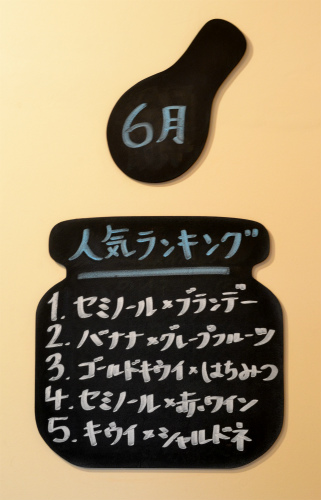 6月
人気ランキング
1. セミノール×ブランデー
2. バナナ×グレープフルーツ
3. ゴールドキウイ×はちみつ
4. セミノール×赤ワイン
5. キウイ×シャルドネ